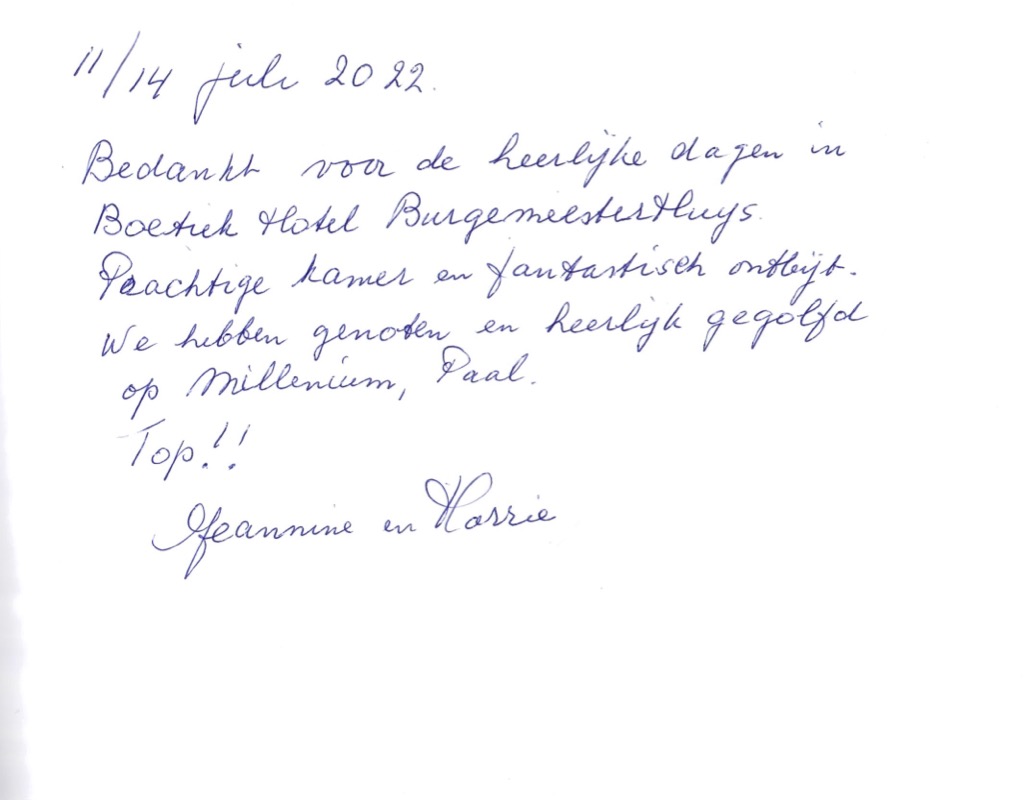 11/14 juli 2022.
Bedankt voor de heerlijke dagen in
Boetiek Hotel BurgemeesterHuys.
Prachtige kamer en fantastisch ontbijt.
We hebben genoten en heerlijk gegolfd
op Millenium, Paal.
Top!!
Jeannine en Harrie